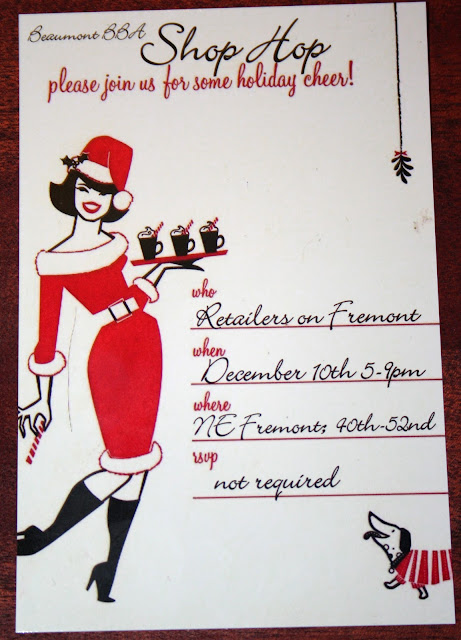 Beaumont BBA
Shop Hop
please join us for some holiday cheer!
who
Retailers on Fremont
when
December 10th 5-9pm
where
NE Fremont; 40th-52nd
rsvp
not required